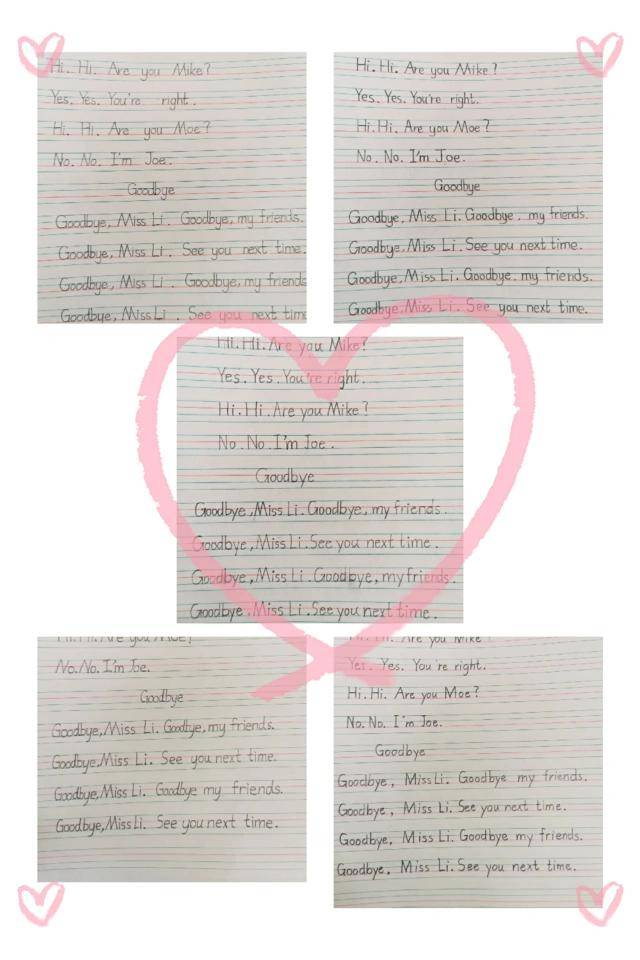 Hi. Hi. Are you Mike?
Yes. Yes. You're right.
Hi. Hi. Are you Moe?
No. No. I'm Joe.
Goodbye
Goodbye, Miss Li. Goodbye, my friends.
Goodbye, Miss Li. See you next time.
Goodbye, Miss Li. Goodbye, my friends
Goodbye, Miss Li. See you next time
Hi. Hi. Are you Mike?
Yes. Yes. You're right.
Hi. Hi. Are you Moe?
No. No. I'm Joe.
Goodbye
Goodbye, Miss Li. Goodbye, my friends.
Goodbye, Miss Li. See you next time.
Goodbye, Miss Li. Goodbye, my friends.
Goodbye, Miss Li. See you next time.
Hi. Hi. Are you Mike?
Yes. Yes. You're right.
Hi. Hi. Are you Mike?
No. No. I'm Joe.
Goodbye
Goodbye, Miss Li. Goodbye, my friends.
Goodbye, Miss Li. See you next time.
Goodbye, Miss Li. Goodbye, my friends.
Goodbye, Miss Li. See you next time.
Hi. Hi. Are you Moe?
No. No. I'm Joe.
Goodbye
Goodbye, Miss Li. Goodbye, my friends.
Goodbye, Miss Li. See you next time.
Goodbye, Miss Li. Goodbye my friends.
Goodbye, Miss Li. See you next time.
Hi. Hi. Are you Mike
Yes. Yes. You're right.
Hi. Hi. Are you Moe?
No. No. I'm Joe.
Goodbye
Goodbye, Miss Li. Goodbye my friends.
Goodbye, Miss Li. See you next time.
Goodbye, Miss Li. Goodbye my friends.
Goodbye, Miss Li. See you next time.